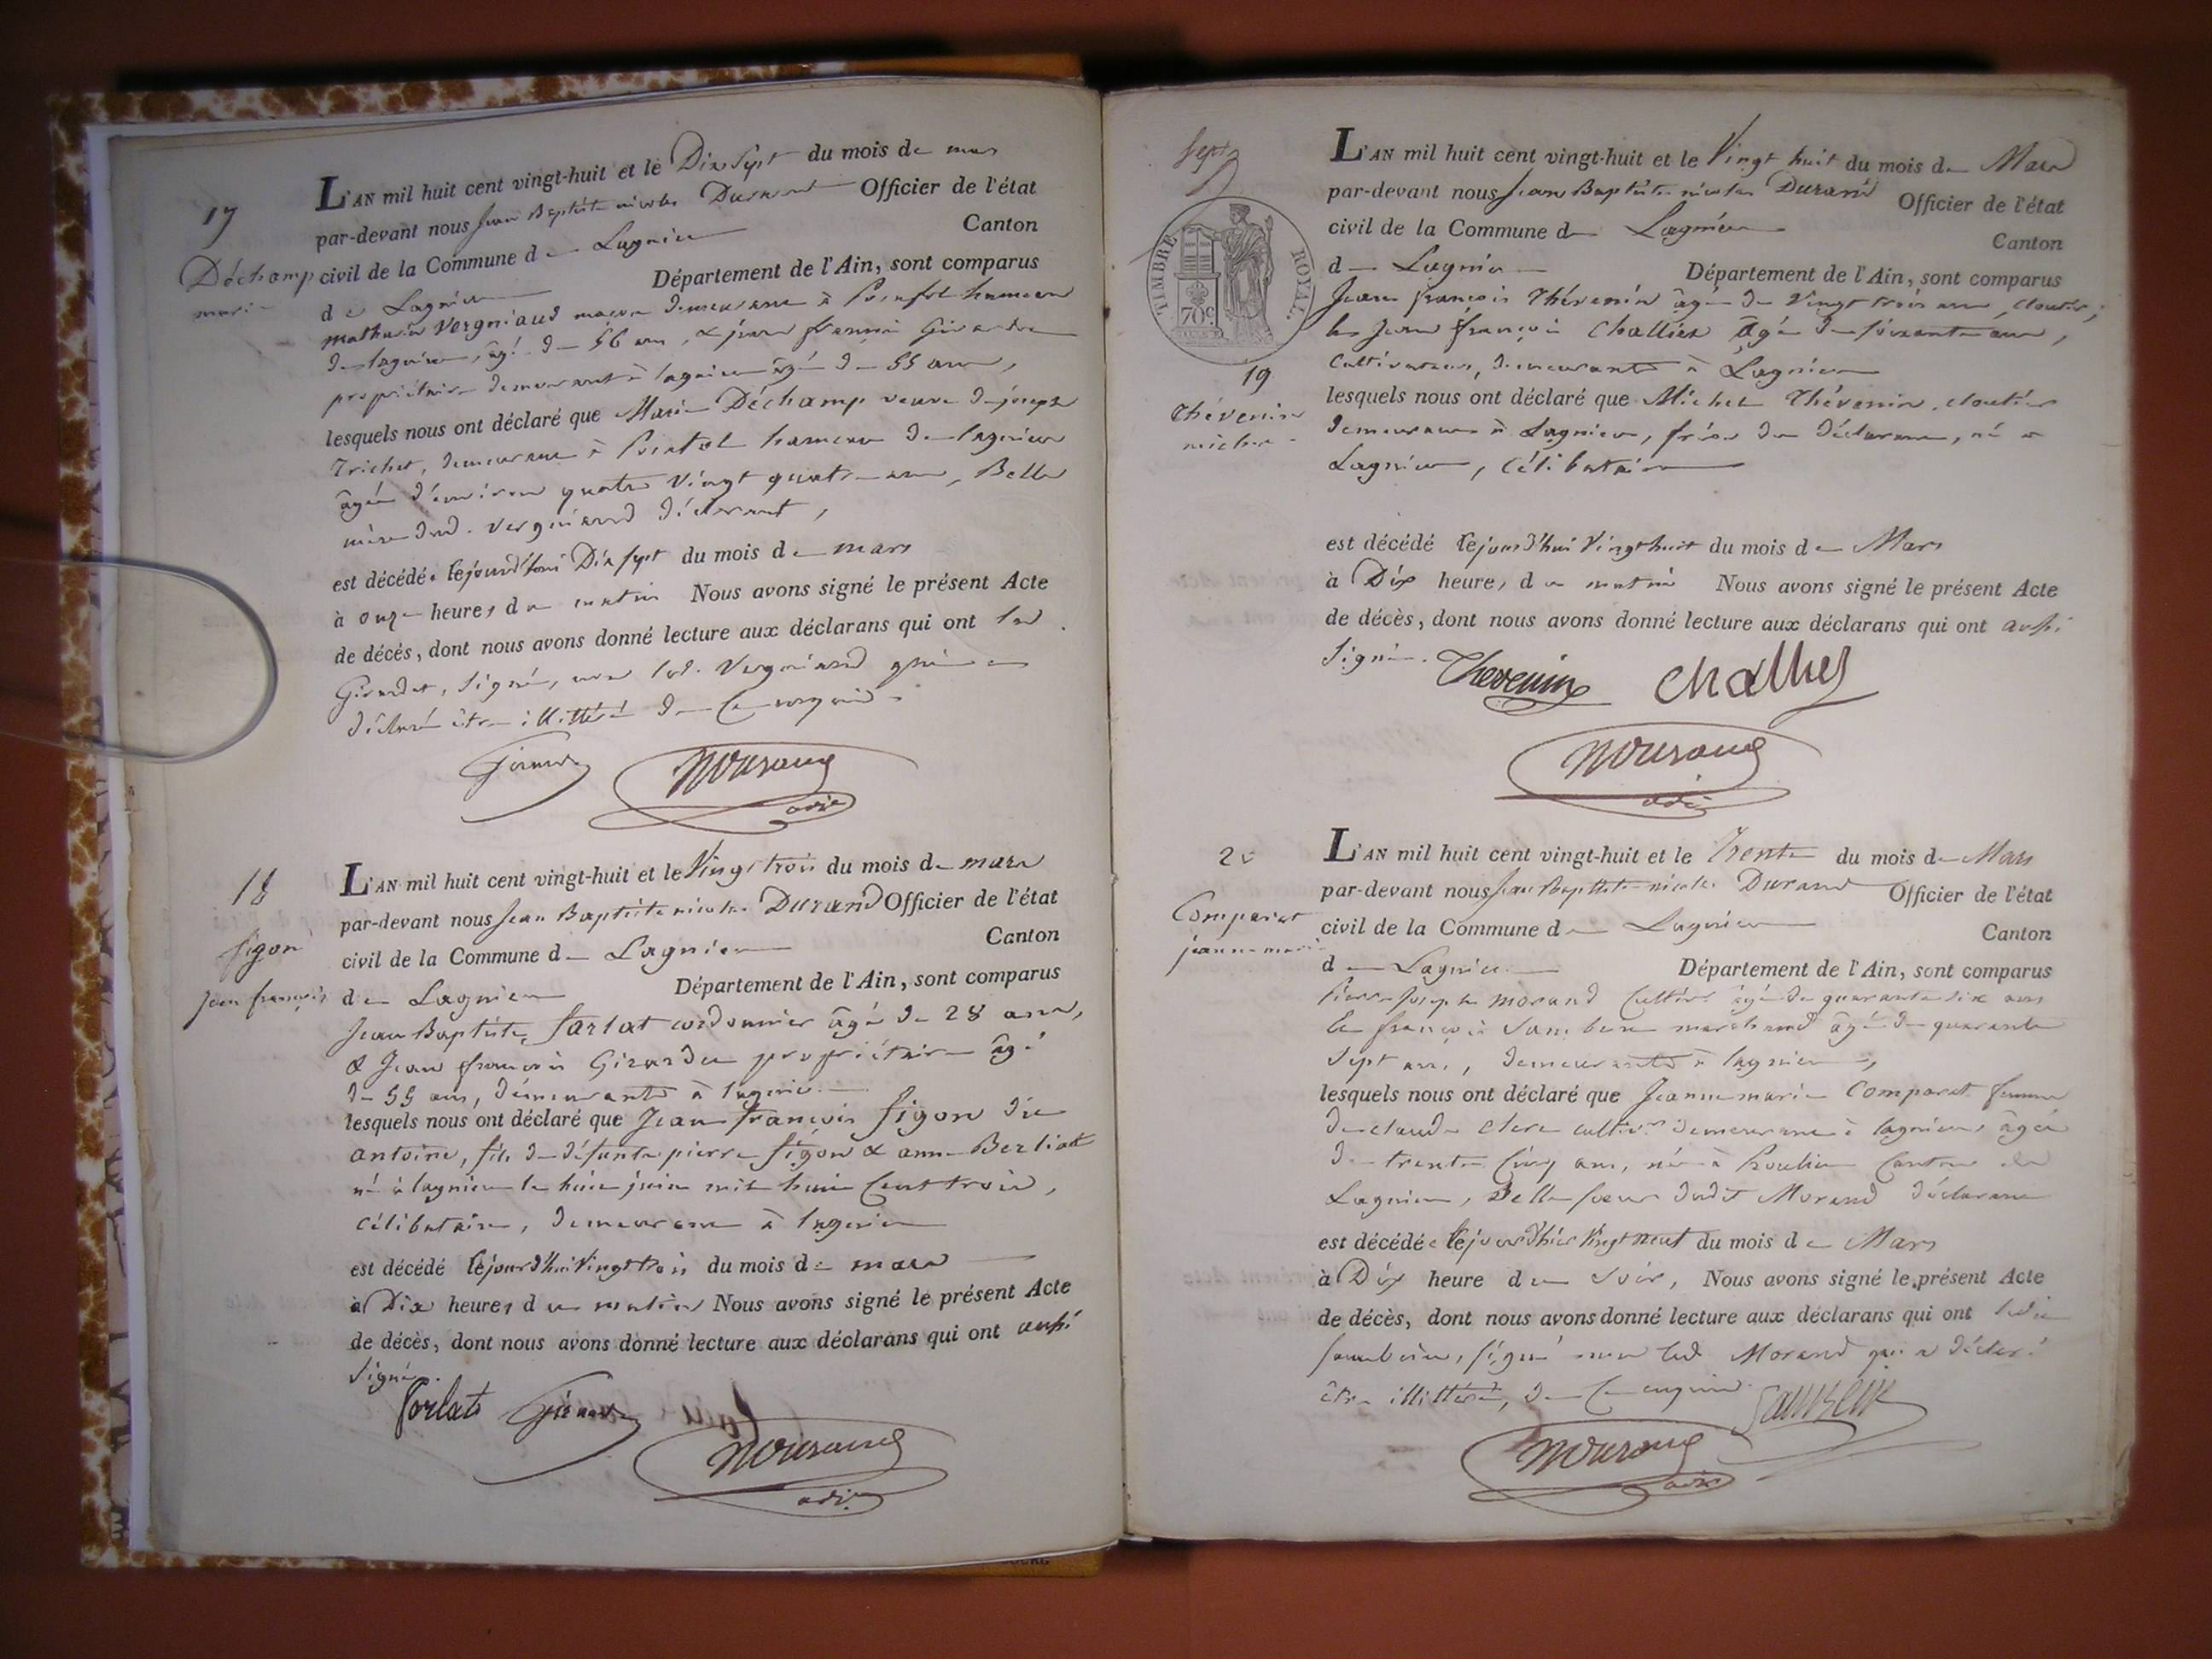 17
Déchamp
marie
L'AN mil huit cent vingt-huit et le Dix Sept du mois de mars
par-devant nous Jean Baptiste nicolas Durand Officier de l'état
civil de la Commune de Lagnieu Canton
de Lagnieu Département de l'Ain, sont comparus
mathieu Vergniaud maçon demeurant à hameau
de lagnieu, âgé de 56 ans, & jean françois Girardet
propriétaire demeurant à lagnieu âgé de 55 ans,
lesquels nous ont déclaré que Marie Déchamp veuve de joseph
Trichet, demeurant à hameau de lagnieu
âgée d'environ quatre vingt quatre ans, Belle
mère dud. Vergniaud déclarant,
est décédée cejourd'hui Dix sept du mois de mars
à onze heures du matin Nous avons signé le présent Acte
de décès, dont nous avons donné lecture aux déclarans qui ont led.
Girardet, signé, non led. Vergniaud qui a
déclaré être illitéré de ce enquis.
Girardet NDurand
adj
18
figon
jean françois
L'AN mil huit cent vingt-huit et le Vingt trois du mois de mars
par-devant nous Jean Baptiste nicolas Durand Officier de l'état
civil de la Commune de Lagnieu Canton
de Lagnieu Département de l'Ain, sont comparus
Jean Baptiste Sarlat cordonnier âgé de 28 ans,
& Jean françois Girardet propriétaire âgé
de 55 ans, demeurants à lagnieu
lesquels nous ont déclaré que Jean françois figon dit
antoine, fils de défunts pierre figon & anne Berliat
né à lagnieu le huit juin mil huit cent trois,
célibataire, demeurant à lagnieu
est décédé cejourd'hui Vingt trois du mois de mars
à Dix heures du matin Nous avons signé le présent Acte
de décès, dont nous avons donné lecture aux déclarans qui ont aussi
signé.
Sarlat Girardet
NDurand
adj
Sept
TIMBRE ROYAL
70c
19
Thévenin
michel
L'AN mil huit cent vingt-huit et le Vingt huit du mois de Mars
par-devant nous Jean Baptiste nicolas Durand Officier de l'état
civil de la Commune de Lagnieu Canton
de Lagnieu Département de l'Ain, sont comparus
Jean françois Thévenin âgé de Vingt trois ans, cloutier,
Jean françois Challiez âgé de soixante ans,
cultivateur, demeurants à Lagnieu
lesquels nous ont déclaré que Michel Thévenin, cloutier
demeurant à Lagnieu, frère du déclarant, né à
Lagnieu, Célibataire
est décédé cejourd'hui Vingt huit du mois de Mars
à Dix heures du matin Nous avons signé le présent Acte
de décès, dont nous avons donné lecture aux déclarans qui ont aussi
signé. Thevenin Challiez
NDurand
adj
20
Comparat
jeanne marie
L'AN mil huit cent vingt-huit et le Trente du mois de Mars
par-devant nous Jean Baptiste nicolas Durand Officier de l'état
civil de la Commune de Lagnieu Canton
de Lagnieu Département de l'Ain, sont comparus
Pierre Joseph Morand Cultivr âgé de quarante six ans
françois marchand âgé de quarante
sept ans, demeurants à lagnieu,
lesquels nous ont déclaré que Jeanne marie Comparat femme
de claude Clerc cultivr demeurant à lagnieu, âgée
de trente Cinq ans, née à Canton de
Lagnieu, Belle soeur dudit Morand déclarant
est décédée cejourd'hier Vingt neuf du mois de Mars
à Dix heure du soir, Nous avons signé le présent Acte
de décès, dont nous avons donné lecture aux déclarans qui ont ledit
signé non led Morand qui a déclaré
être illittéré, de ce enquis.
NDurand
adj